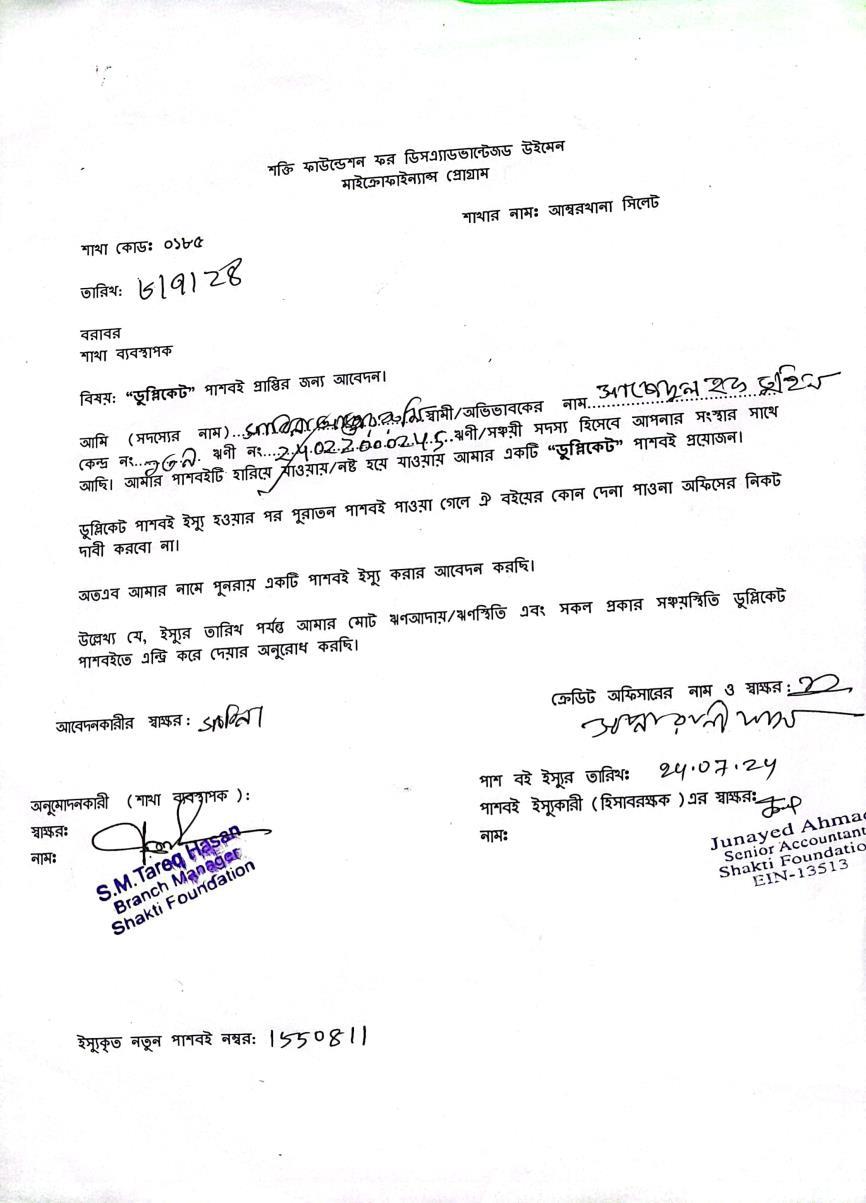 শক্তি ফাউন্ডেশন ফর ডিসএ্যাডভান্টেজড উইমেন
মাইক্রোফাইন্যান্স প্রোগ্রাম
শাখার নামঃ আম্বরখানা সিলেট
শাখা কোডঃ ০১৮৫
তারিখঃ
বরাবর
শাখা ব্যবস্থাপক
বিষয়ঃ “ডুপ্লিকেট” পাশবই প্রাপ্তির জন্য আবেদন।
আমি (সদস্যের নাম)... স্বামী/অভিভাবকের নাম...
কেন্দ্র নং... ঋণী নং...24022000245 ঋণী/সঞ্চয়ী সদস্য হিসেবে আপনার সংস্থার সাথে
আছি। আমার পাশবইটি হারিয়ে যাওয়ায়/নষ্ট হয়ে যাওয়ায় আমার একটি “ডুপ্লিকেট” পাশবই প্রয়োজন।
ডুপ্লিকেট পাশবই ইস্যু হওয়ার পর পুরাতন পাশবই পাওয়া গেলে ঐ বইয়ের কোন দেনা পাওনা অফিসের নিকট
দাবী করবো না।
অতএব আমার নামে পূনরায় একটি পাশবই ইস্যু করার আবেদন করছি।
উল্লেখ্য যে, ইস্যুর তারিখ পর্যন্ত আমার মোট ঋণআদায়/ঋণস্থিতি এবং সকল প্রকার সঞ্চয়স্থিতি ডুপ্লিকেট
পাশবইতে এন্ট্রি করে দেয়ার অনুরোধ করছি।
ক্রেডিট অফিসারের নাম ও স্বাক্ষর:
আবেদনকারীর স্বাক্ষর:
পাশ বই ইস্যুর তারিখঃ 24.07.24
অনুমোদনকারী (শাখা ব্যবস্থাপক ):
পাশবই ইস্যুকারী (হিসাবরক্ষক )এর স্বাক্ষরঃ
স্বাক্ষরঃ
নামঃ
নামঃ
S.M.Tareq Hasan
Branch Manager
Shakti Foundation
Junayed Ahma
Senior Accountant
Shakti Foundatio
EIN-13513
ইস্যুকৃত নতুন পাশবই নম্বরঃ 1550811